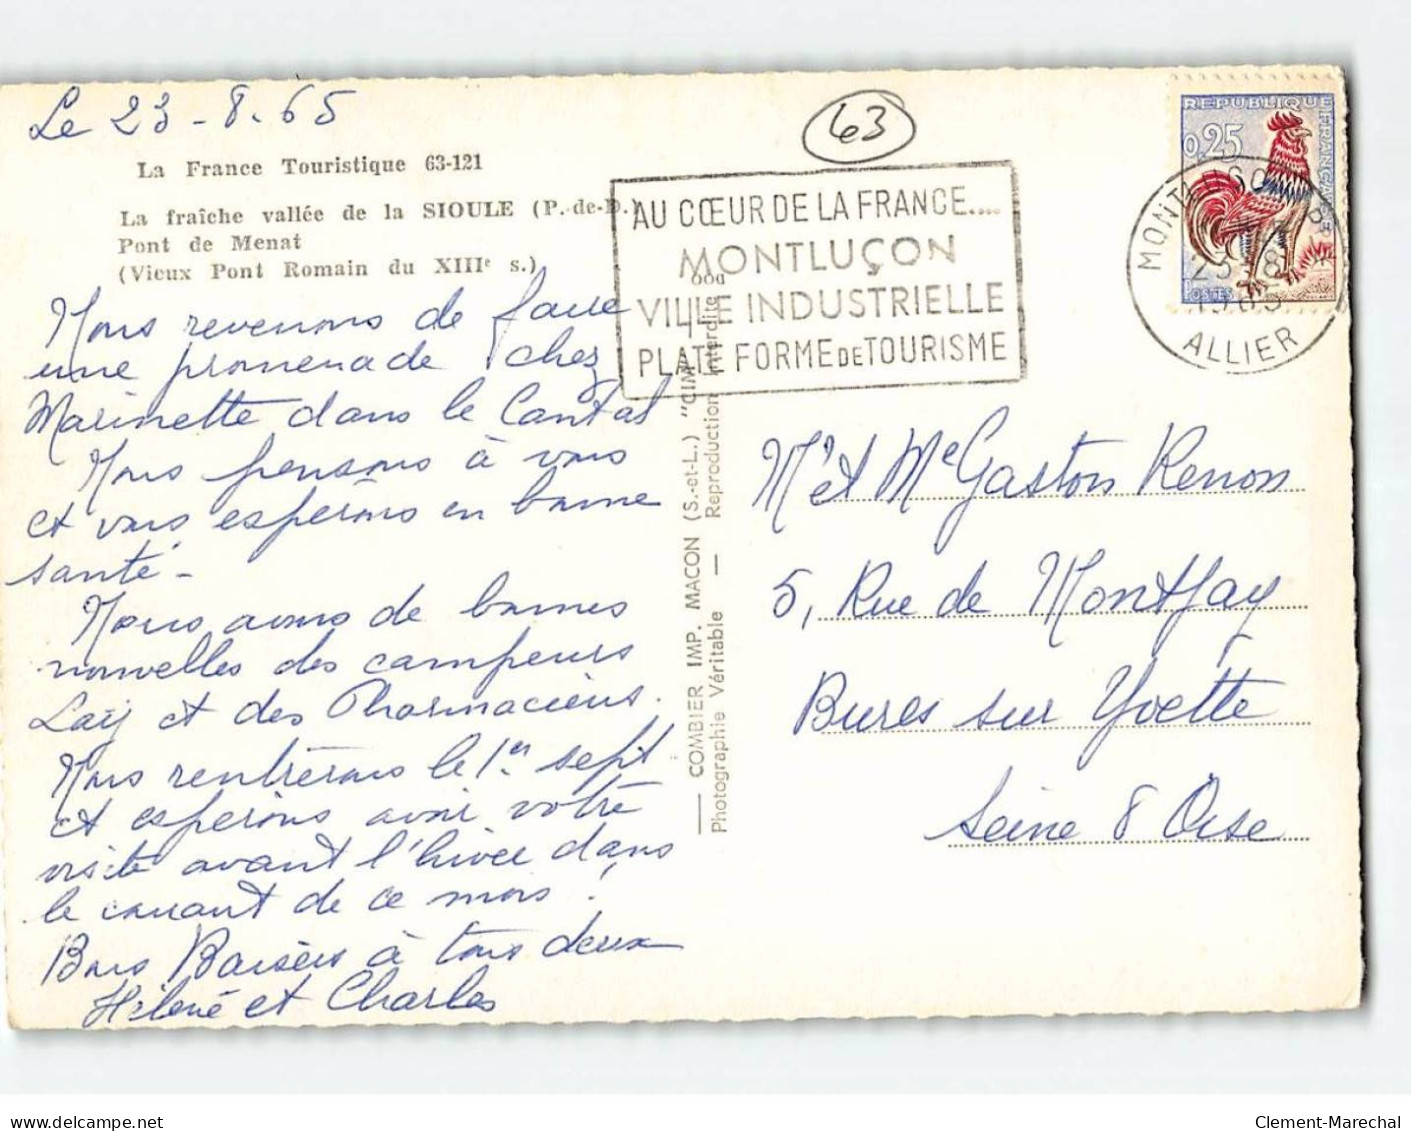 Le 23-8.65
La France Touristique 63-121
La fraîche vallée de la SIOULE (P.-de-D.)
Pont de Menat
(Vieux Pont Romain du XIIIe s.)
Nous revenons de faire
une promenade chez
Marinette dans le Cantal
Nous pensons à vous
et vous espérons en bonne
santé -
Nous avons de bonnes
nouvelles des campeurs
Laÿ et des Pharmaciens.
Nous rentrerons le 1er sept
et espérons avoir votre
visite avant l'hiver dans
le courant de ce mois.
Bons Baisers à tous deux
Hélène et Charles
COMBIER IMP. MACON (S.-et-L.) "CIM"
Photographie Véritable — Reproduction Interdite
63
AU CŒUR DE LA FRANCE....
MONTLUÇON
VILLE INDUSTRIELLE
PLATE FORME DE TOURISME
REPUBLIQUE FRANÇAISE
0,25
POSTES
ALLIER
Mr et Me Gaston Renon
5, Rue de Montjay
Bures sur Yvette
Seine & Oise
delcampe.net
Clement-Marechal